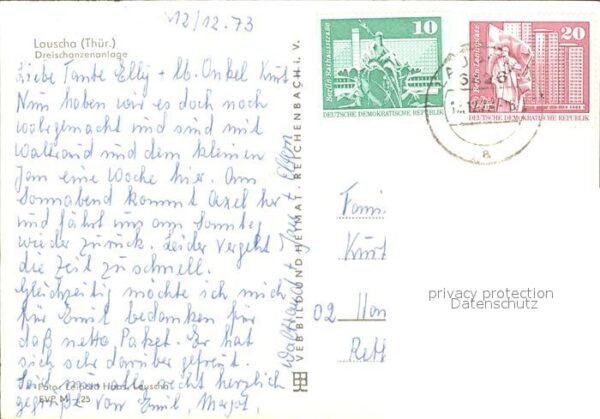 12/12.73
Lauscha (Thür.)
Dreischanzenanlage
Liebe Tante Elly + lb. Onkel Kurt
Nun haben wir es doch noch
wahrgemacht und sind mit
Waltraud und dem kleinen
Jan eine Woche hier. Am
Sonnabend kommt Axel her
und fährt uns am Sonntag
wieder zurück. Leider vergeht
die Zeit zu schnell.
Gleichzeitig möchte ich mich
für Emil bedanken für
daß nette Paket. Er hat
sich sehr darüber gefreut.
Seid nun alle recht herzlich
gegrüßt von Emil, Margot,
Waltraud + Jan + Eltern
Foto: Leipold Haas, Lauscha
EVP M -,25
VEB BILD UND HEIMAT · REICHENBACH i. V.
10
Berlin-Rathausstraße
DEUTSCHE DEMOKRATISCHE REPUBLIK
20
Berlin-Leninplatz
DEUTSCHE DEMOKRATISCHE REPUBLIK
a
Fami
Kurt
02 Han
Rett
privacy protection
Datenschutz